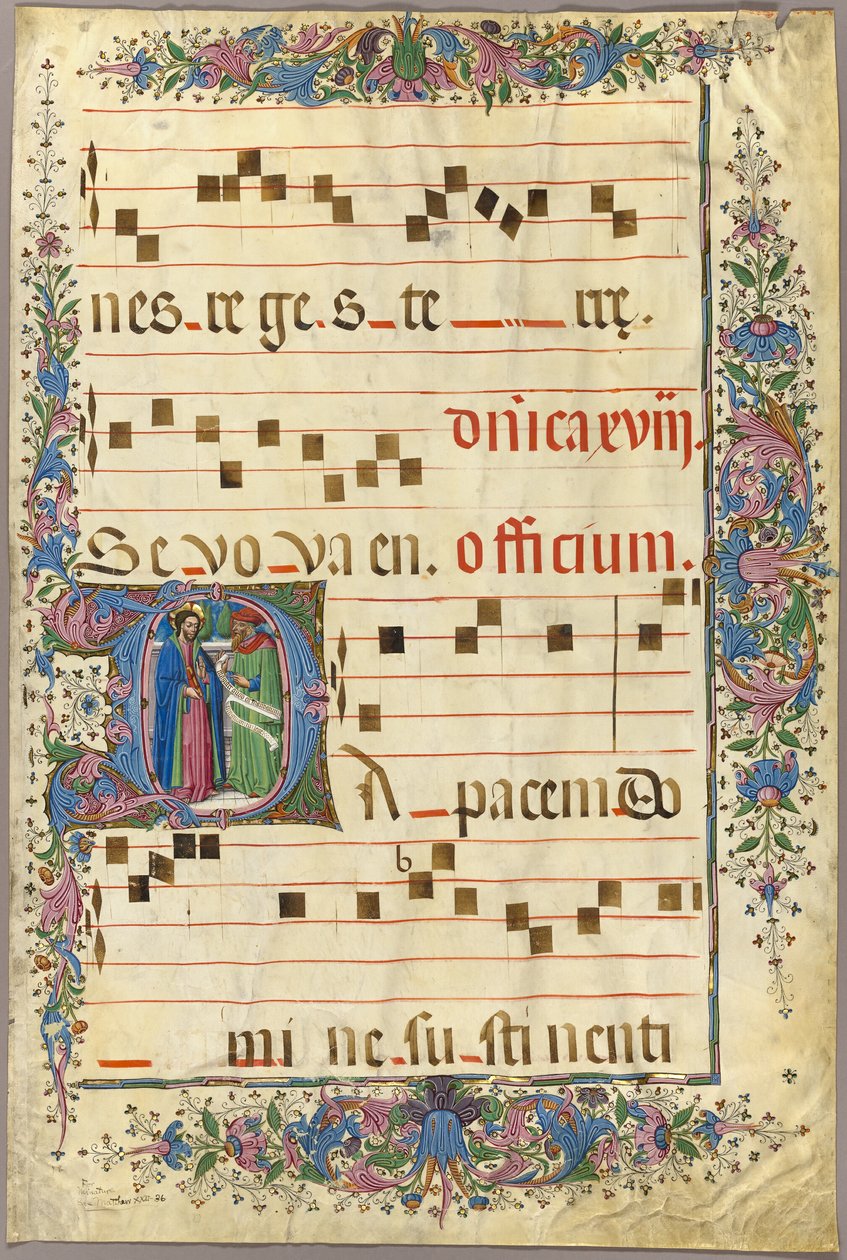 nes re ge s te rrę.
dn̄ica xviij.
Se vo va en. officium.
DA pacem Do
b
mi ne su sti nenti